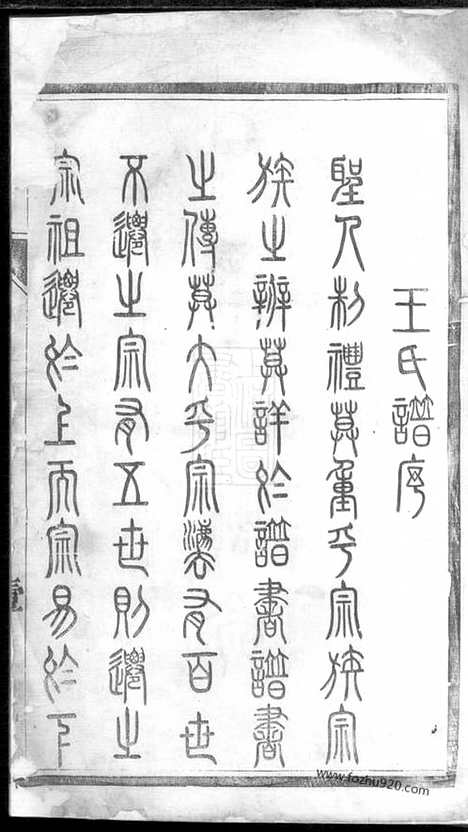 王氏譜序
聖人制禮莫重乎宗族宗
族之辨莫詳於譜書譜書
之傳莫大乎宗灋有百世
不遷之宗有五世則遷之
宗祖遷於上而宗易於下
www.fozhu920.com